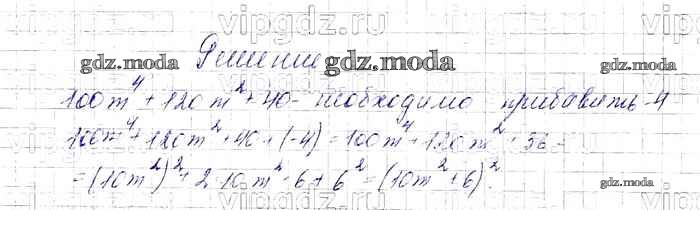 vipgdz.ru vipgdz.ru
Решение
gdz.moda gdz.moda gdz.moda
100m⁴ + 120m² + 40 - необходимо прибавить -4
100m⁴ + 120m² + 40 + (-4) = 100m⁴ + 120m² + 36 =
= (10m²)² + 2·10m²·6 + 6² = (10m² + 6)².
gdz.moda
vipgdz.ru vipgdz.ru